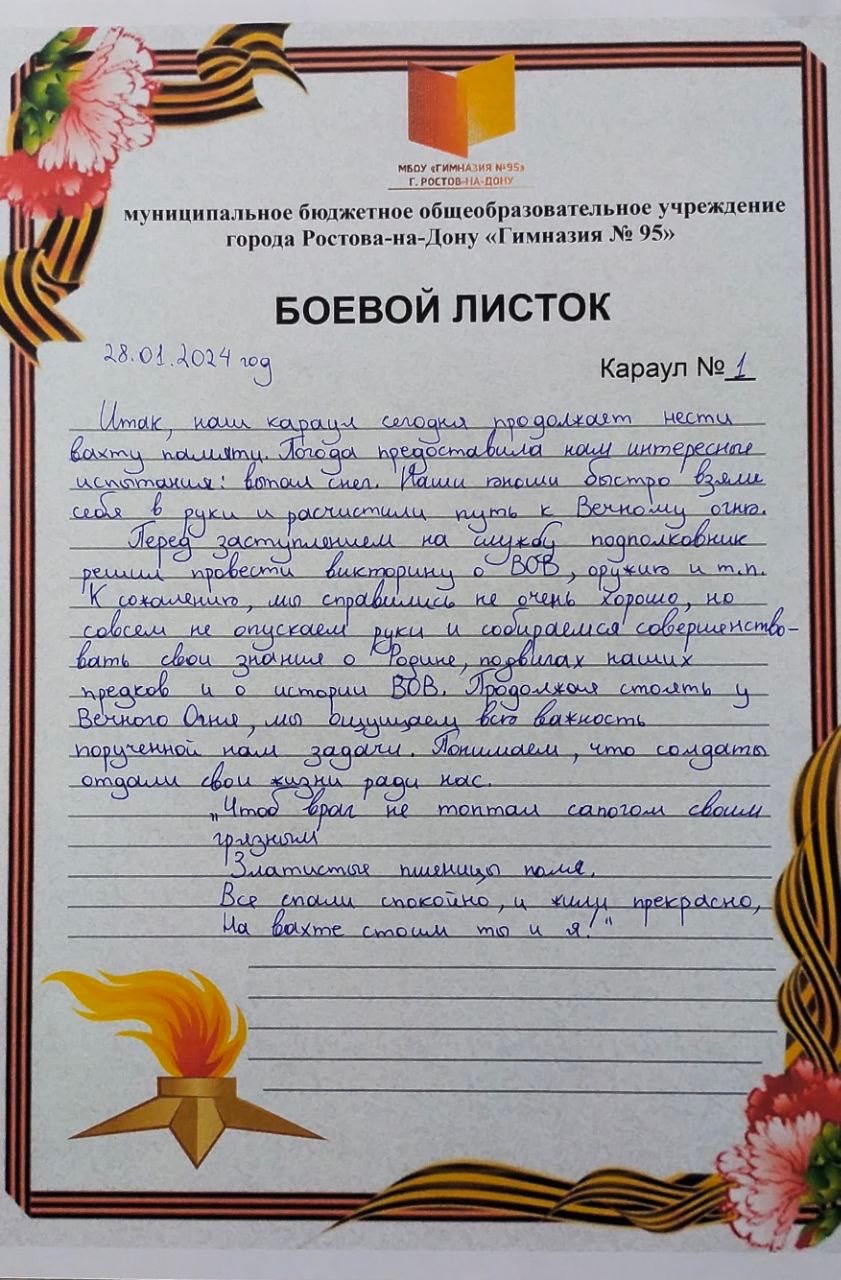 МБОУ «ГИМНАЗИЯ №95»
Г. РОСТОВ-НА-ДОНУ
муниципальное бюджетное общеобразовательное учреждение
города Ростова-на-Дону «Гимназия № 95»
БОЕВОЙ ЛИСТОК
28.01.2024 год
Караул № 1
Итак, наш караул сегодня продолжает нести
вахту памяти. Погода предоставила нам интересные
испытания: выпал снег. Наши юноши быстро взяли
себя в руки и расчистили путь к Вечному огню.
Перед заступлением на службу подполковник
решил провести викторину о ВОВ, оружию и т.п.
К сожалению, мы справились не очень хорошо, но
совсем не опускаем руки и собираемся совершенство-
вать свои знания о Родине, подвигах наших
предков и о истории ВОВ. Продолжая стоять у
Вечного Огня, мы ощущаем всю важность
порученной нам задачи. Понимаем, что солдаты
отдали свои жизни ради нас.
„Чтоб враг не топтал сапогом своим
грязным
Златистые пшеницы поля.
Все спали спокойно, и жили прекрасно,
На вахте стоим ты и я!"